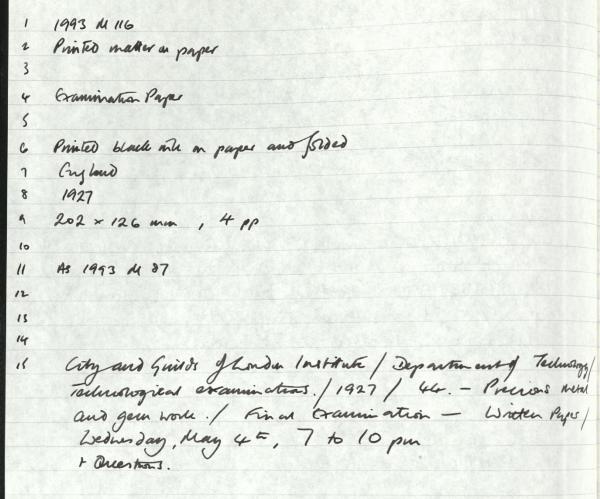 1 1993 M 116
2 Printed matter on paper
3
4 Examination Paper
5
6 Printed black ink on paper and folded
7 England
8 1927
9 202 × 126 mm , 4 pp
10
11 As 1993 M 87
12
13
14
15 City and Guilds of London Institute / Department of Technology /
Technological examinations. / 1927 / 44. — Precious Metal
and gem work. / Final Examination — Written Paper /
Wednesday, May 4th, 7 to 10 pm
+ Questions.